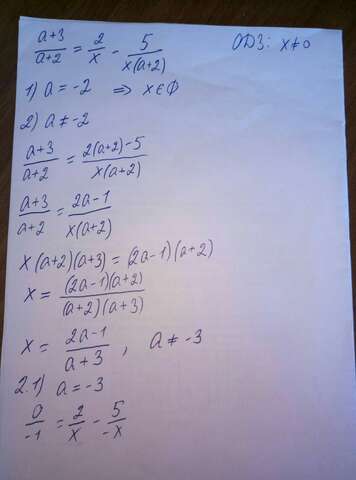 (a+3)/(a+2) = 2/x - 5/(x(a+2)) ОДЗ: x≠0
1) a = -2 ⇒ x∈Ф
2) a ≠ -2
(a+3)/(a+2) = (2(a+2)-5)/(x(a+2))
(a+3)/(a+2) = (2a-1)/(x(a+2))
x(a+2)(a+3) = (2a-1)(a+2)
x = ((2a-1)(a+2))/((a+2)(a+3))
x = (2a-1)/(a+3) , a ≠ -3
2.1) a = -3
0/-1 = 2/x - 5/-x